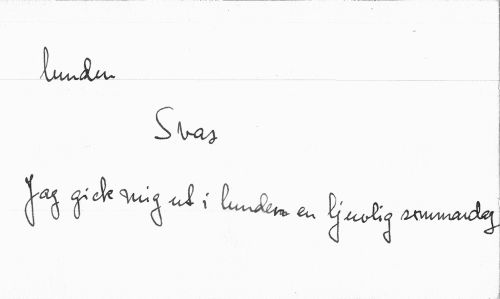 lunden
Svas
Jag gick mig ut i lunden en ljuvlig sommardag